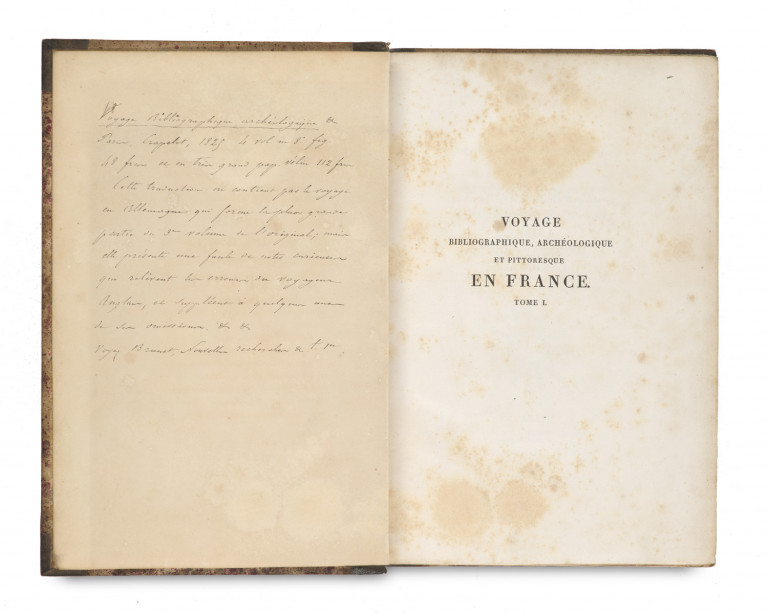 Voyage Bibliographique archéologique &
Paris, Crapelet, 1825 4 vol in 8° fig
48 francs et en très grand pap. vélin 112 fr
Cette traduction ne contient pas le voyage
en Allemagne qui forme la plus grande
partie du 3e volume de l'original; mais
elle présente une foule de notes curieuses
qui relèvent les erreurs du voyageur
Anglais, et suppléent à quelques unes
de ses omissions, & &
Voyez Brunet, Nouvelles recherches &
VOYAGE
BIBLIOGRAPHIQUE, ARCHÉOLOGIQUE
ET PITTORESQUE
EN FRANCE.
TOME I.